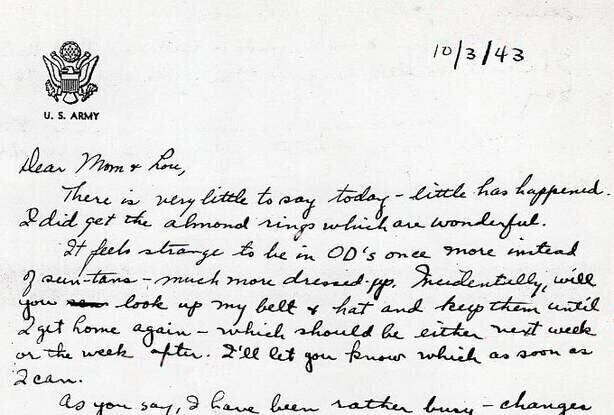 10/3/43
U. S. ARMY
Dear Mom & Lou,
There is very little to say today - little has happened.
I did get the almond rings which are wonderful.
It feels strange to be in OD's once more instead
of sun-tans - much more dressed-up. Incidentally, will
you look up my belt & hat and keep them until
I get home again - which should be either next week
or the week after. I'll let you know which as soon as
I can.
As you say, I have been rather busy - changes